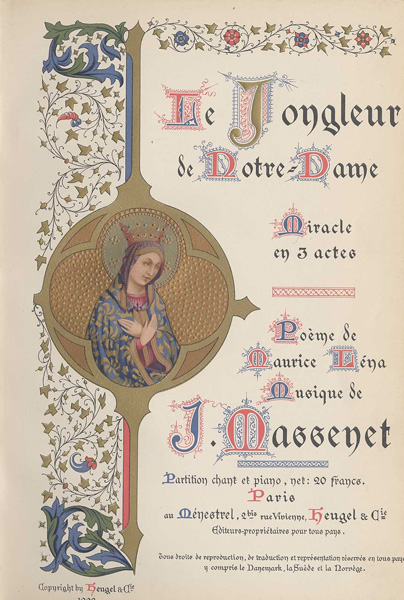 Le Jongleur
de Notre-Dame
Miracle
en 3 actes
Poème de
Maurice Léna
Musique de
J. Massenet
Partition chant et piano, net: 20 francs.
Paris
au Ménestrel, 2bis rue Vivienne, Heugel & Cie
Editeurs-propriétaires pour tous pays.
Tous droits de reproduction, de traduction et représentation réservés en tous pays
y compris le Danemark, la Suède et la Norvège.
Copyright by Heugel & Cie